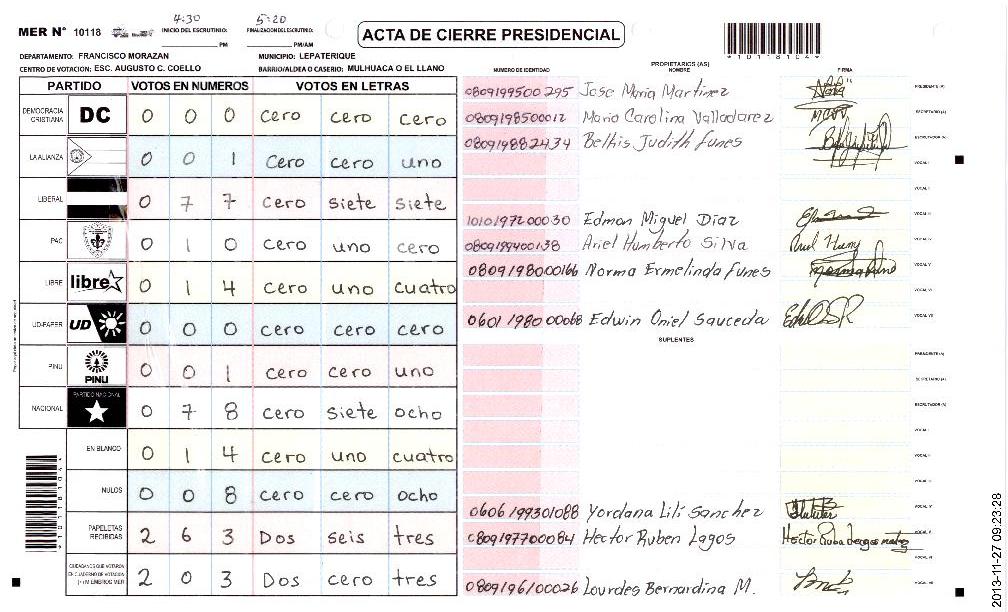 4:30 5:20
MER N° 10118 INICIO DEL ESCRUTINIO: FINALIZACION DEL ESCRUTINIO: ACTA DE CIERRE PRESIDENCIAL
PM PM/AM
*10118104*
DEPARTAMENTO: FRANCISCO MORAZAN MUNICIPIO: LEPATERIQUE
CENTRO DE VOTACION: ESC. AUGUSTO C. COELLO BARRIO/ALDEA O CASERIO: MULHUACA O EL LLANO
PROPIETARIOS (AS)
NUMERO DE IDENTIDAD NOMBRE FIRMA
PARTIDO VOTOS EN NUMEROS VOTOS EN LETRAS
DEMOCRACIA CRISTIANA DC 0 0 0 cero cero cero
LA ALIANZA 0 0 1 cero cero uno
LIBERAL 0 7 7 cero siete siete
PAC 0 1 0 cero uno cero
LIBRE libre 0 1 4 cero uno cuatro
UD-FAPER UD 0 0 0 cero cero cero
PINU PINU 0 0 1 cero cero uno
NACIONAL PARTIDO NACIONAL 0 7 8 cero siete ocho
EN BLANCO 0 1 4 cero uno cuatro
NULOS 0 0 8 cero cero ocho
PAPELETAS RECIBIDAS 2 6 3 Dos seis tres
CIUDADANOS QUE VOTARON EN CUADERNO DE VOTACION (+) MIEMBROS MER 2 0 3 Dos cero tres
0809199500295 Jose Maria Martinez PRESIDENTE (A)
0809198500012 Maria Carolina Valladarez SECRETARIO (A)
080919882434 Belhis Judith funes ESCRUTADOR (A)
VOCAL I
VOCAL II
1010197200030 Edman Miguel Diaz VOCAL III
0809199400138 Ariel Humberto Silva VOCAL IV
0809198000166 Norma Ermelinda funes VOCAL V
VOCAL VI
0601198000068 Edwin Oniel Sauceda VOCAL VII
SUPLENTES
PRESIDENTE (A)
SECRETARIO (A)
ESCRUTADOR (A)
VOCAL I
VOCAL II
VOCAL III
0606199301088 Yordana Lili Sanchez VOCAL IV
0809197700084 Hector Ruben Lagos VOCAL V
VOCAL VI
0809196100026 Lourdes Bernardina M. VOCAL VII
*10118104*
2013-11-27 09:23:28